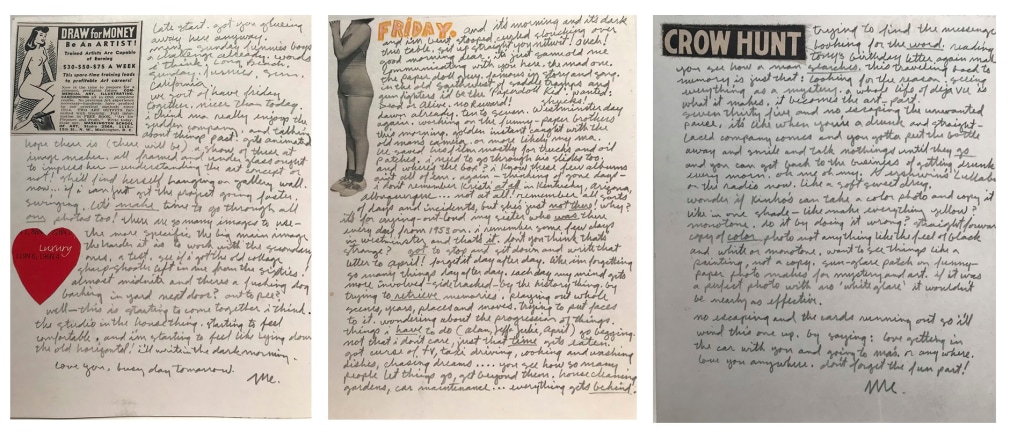 DRAW for MONEY
Be An ARTIST!
Trained Artists Are Capable
of Earning
$30-$50-$75 A WEEK
late start. got you glueing
away here anyway.
a challenge
i think.
california.
we sort of have friday
together. nicer than today.
i think ma really enjoys the
company, and talking
about the past. gets animated
hope there is (there will be) a show of these at
image maker. all framed and under glass ought
to impress her - understanding the art concept or
not! she'll find herself hanging on gallery wall.
now... if i can just get the project going faster.
swinging. let's make time to go through all
our photos too! there are so many images to use -
Luxury
the more specific the big main image
the harder it is to work with the secondary
ones, a test, see if i got the old collage
sharp-shooter left in me from the sixties!
almost midnite and there's a fucking dog
barking in yard next door? out to pee?
well - this is starting to come together i think.
the studio in the house thing. starting to feel
comfortable, and im starting to feel like lying down
the old horizontal! i'll write in the dark morning.
love you, busy day tomorrow.
Me.
FRIDAY. and it's morning and it's dark
and i'm bent stooped curled slouching over
this table. get up straight you nitwit! ouch!
good morning dear, it's just same old me
communicating with you here, the mad one.
the paper doll guy, famous in story and song.
in the old
Dead or Alive. no Reward!
Westminster day
dawn already, ten to seven.
again. working on the funny-paper brothers
this morning. golden instant caught with the
old man's camera, or more likely my ma.
he saved his film mostly for trucks and oil
patches. i need to go through his slides too,
and where's the box? i know these few albums
ain't all of em. again - thinking of gone days -
i don't remember Kristi at all in Kentucky, Arizona,
albuquerque... not at all! i remember lots
of days and incidents, but she's just not there! why?
it's for crying-out-loud my sister who was there
every day from 1952 on. i remember some few days
westminster, and that's it. don't you think that's
strange? got to stop and sit down and write that
letter to april! forget it day after day. like im forgetting
so many things day after day. each day my mind gets
more involved - side tracked - by the history thing. by
trying to retrieve memories. playing out whole
scenes, years, places and moves. trying to put faces
to it. wondering about the progression of things.
things i have to do (alan, jeff, julie, april) go begging.
not that i don't care, just that time gets eaten.
got curse of TV, taxi driving, cooking and washing
dishes, chasing dreams.... you see how so many
people let things go, get beyond them. house cleaning
gardens, car maintenance... everything gets behind!
CROW HUNT
trying to find the message
looking for the word. reading
tony's birthday letter again makes
you see how a man searches. this traveling back to
memory is just that: looking for the reason. i see
everything as a mystery. a whole life of deja vu is
what it makes. it becomes the art-part.
seven thirty five and no escaping the unwanted
pause, it's like when you're a drunk and straight-
laced company comes and you gotta put the bottle
away and smile and talk nothings until they go
and you can get back to the business of getting drunk
every morn. oh me oh my. Gershwin's Lullaby
on the radio now. like a soft sweet dream.
wonder if Kinko's can take a color photo and copy it
like in one shade - like make everything yellow?
monotone. do it by doing it wrong? straightforward
copy of color photo not anything like the feel of black
and white or monotone. want to see things like
painting, not a copy. sun-glare patch on funny-
paper photo makes for mystery and art. if it was
a perfect photo with no 'white glare' it wouldn't
be nearly as effective.
no escaping and the cards running out so i'll
wind this one up. by saying: love getting in
the car with you and going to ma's, or any where.
love you anywhere. don't forget the fun part!
Me.